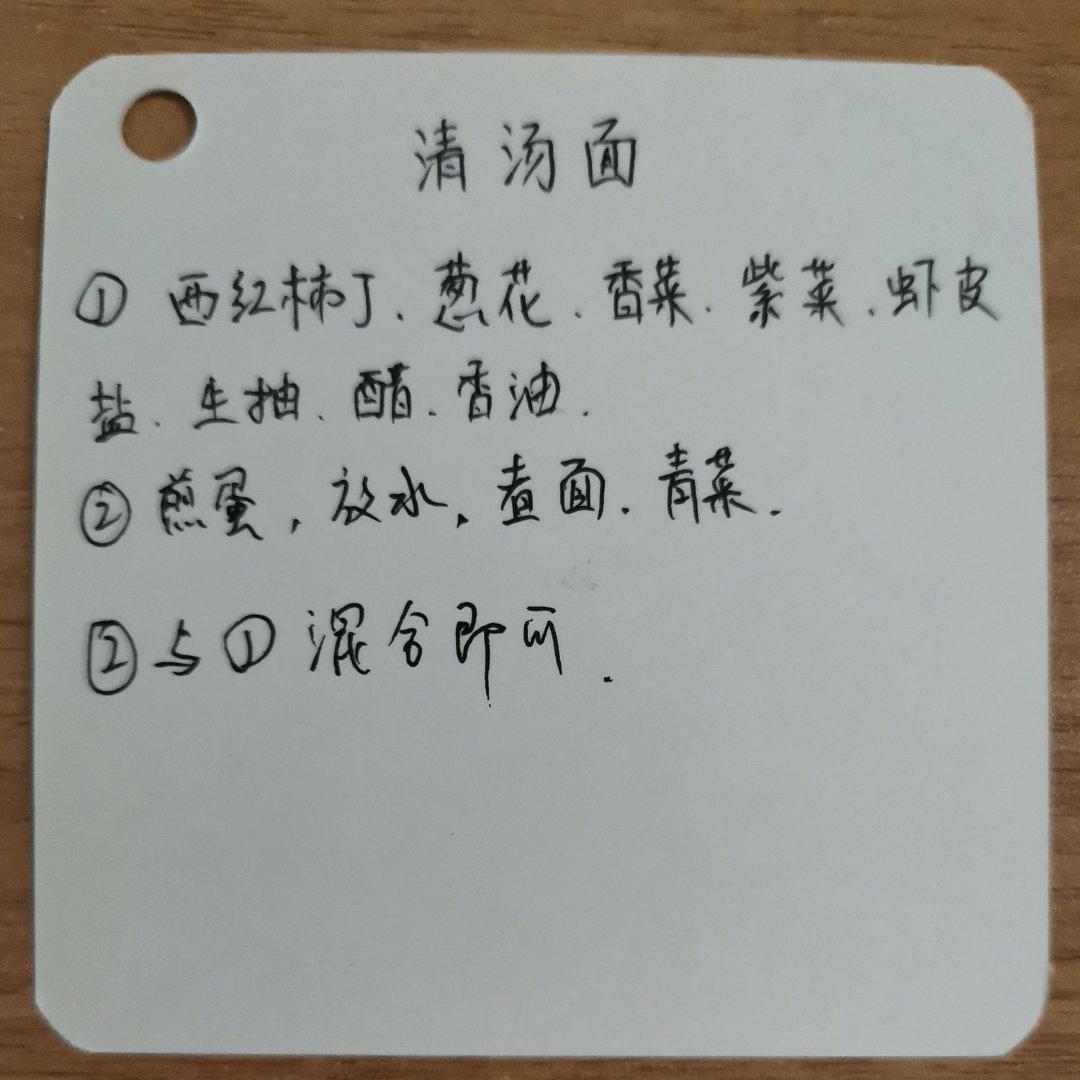 清汤面
① 西红柿丁、葱花、香菜、紫菜、虾皮
盐、生抽、醋、香油.
② 煎蛋,放水,煮面.青菜.
②与①混合即可.